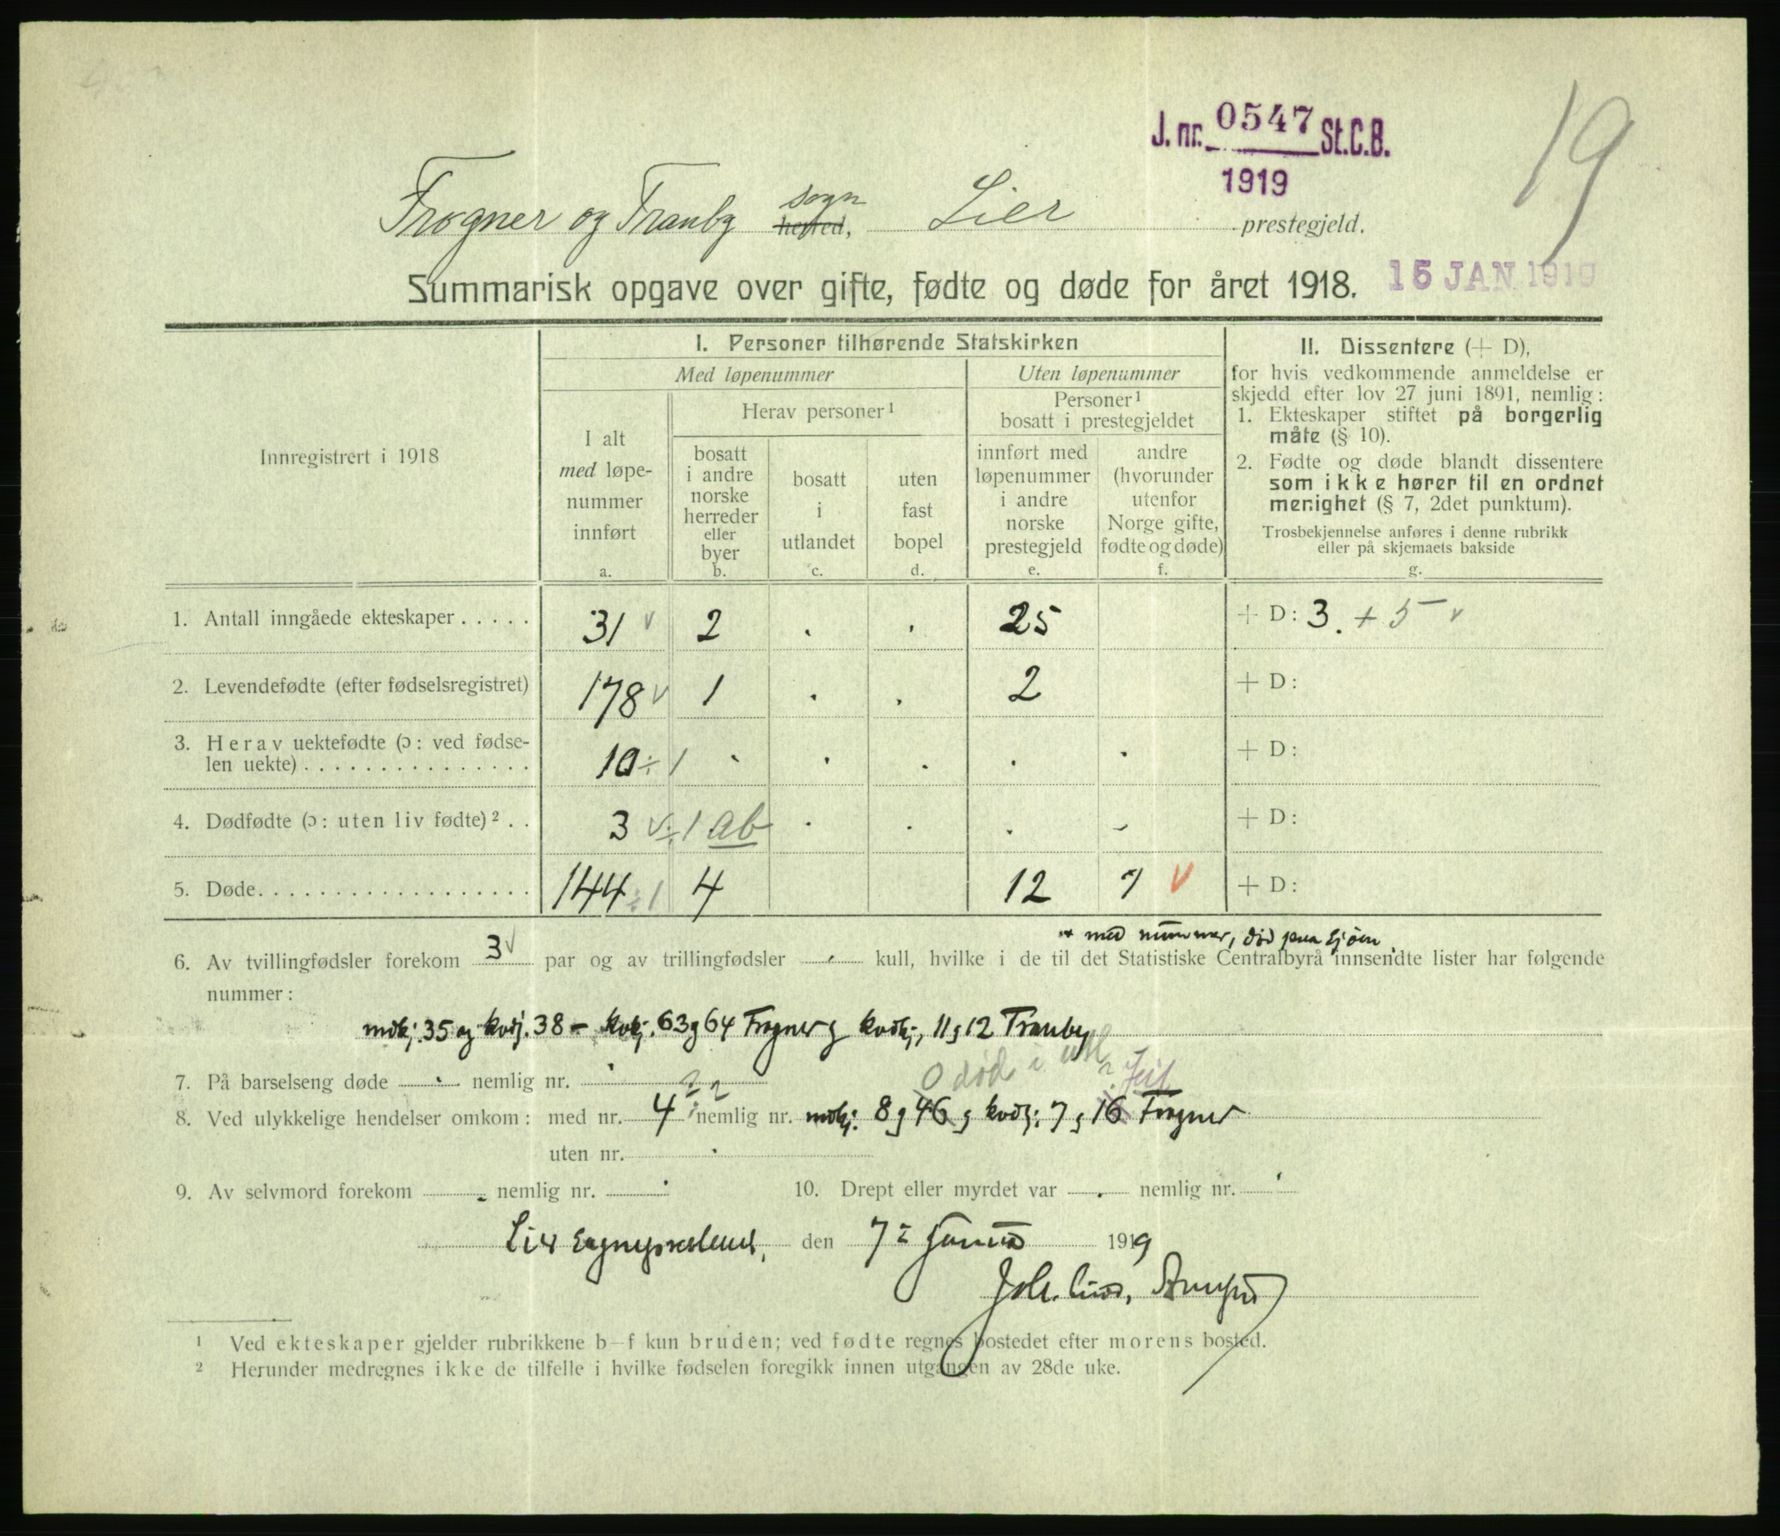 19
J. nr. 0547 St.C.B.
1919
sogn
Frogner og Tranby herred, Lier prestegjeld.
Summarisk opgave over gifte, fødte og døde for året 1918. 15 JAN 1919
Innregistrert i 1918
I. Personer tilhørende Statskirken
Med løpenummer
Uten løpenummer
I alt
med løpe-
nummer
innført
a.
Herav personer¹
bosatt
i andre
norske
herreder
eller
byer
b.
bosatt
i
utlandet
c.
uten
fast
bopel
d.
Personer¹
bosatt i prestegjeldet
innført med
løpenummer
i andre
norske
prestegjeld
e.
andre
(hvorunder
utenfor
Norge gifte,
fødte og døde)
f.
II. Dissentere (+ D),
for hvis vedkommende anmeldelse er
skjedd efter lov 27 juni 1891, nemlig:
1. Ekteskaper stiftet på borgerlig
måte (§ 10).
2. Fødte og døde blandt dissentere
som ikke hører til en ordnet
menighet (§ 7, 2det punktum).
Trosbekjennelse anføres i denne rubrikk
eller på skjemaets bakside
g.
1. Antall inngåede ekteskaper . . . . . 31 v 2 . . 25 + D: 3. + 5 v
2. Levendefødte (efter fødselsregistret) 178 v 1 . . 2 + D:
3. Herav uektefødte (ɔ: ved fødse-
len uekte) . . . . . . . . . . . . . . . 10 ÷ 1 . . . . . + D:
4. Dødfødte (ɔ: uten liv fødte)² . . 3 v ÷ 1 ab . . . - + D:
5. Døde. . . . . . . . . . . . . . . . . . 144 ÷ 1 4 12 7 v + D:
* med nummer, død paa sjøen.
6. Av tvillingfødsler forekom 3 v par og av trillingfødsler . kull, hvilke i de til det Statistiske Centralbyrå innsendte lister har følgende
nummer:
mdkj. 35 og kvdj. 38 - kvkj. 63 g 64 Frogner g kvdkj, 11 g 12 Tranby
7. På barselseng døde . nemlig nr. .
0 død i utl ? Feil
8. Ved ulykkelige hendelser omkom: med nr. 4 ÷ 2 nemlig nr. mdkj: 8 g 46 g kvdkj: 7 g 16 Frogner
uten nr. .
9. Av selvmord forekom - nemlig nr. .
10. Drept eller myrdet var . nemlig nr. .
Lier Sogneprestembed, den 7de Januar 1919
1 Ved ekteskaper gjelder rubrikkene b–f kun bruden; ved fødte regnes bostedet efter morens bosted.
2 Herunder medregnes ikke de tilfelle i hvilke fødselen foregikk innen utgangen av 28de uke.